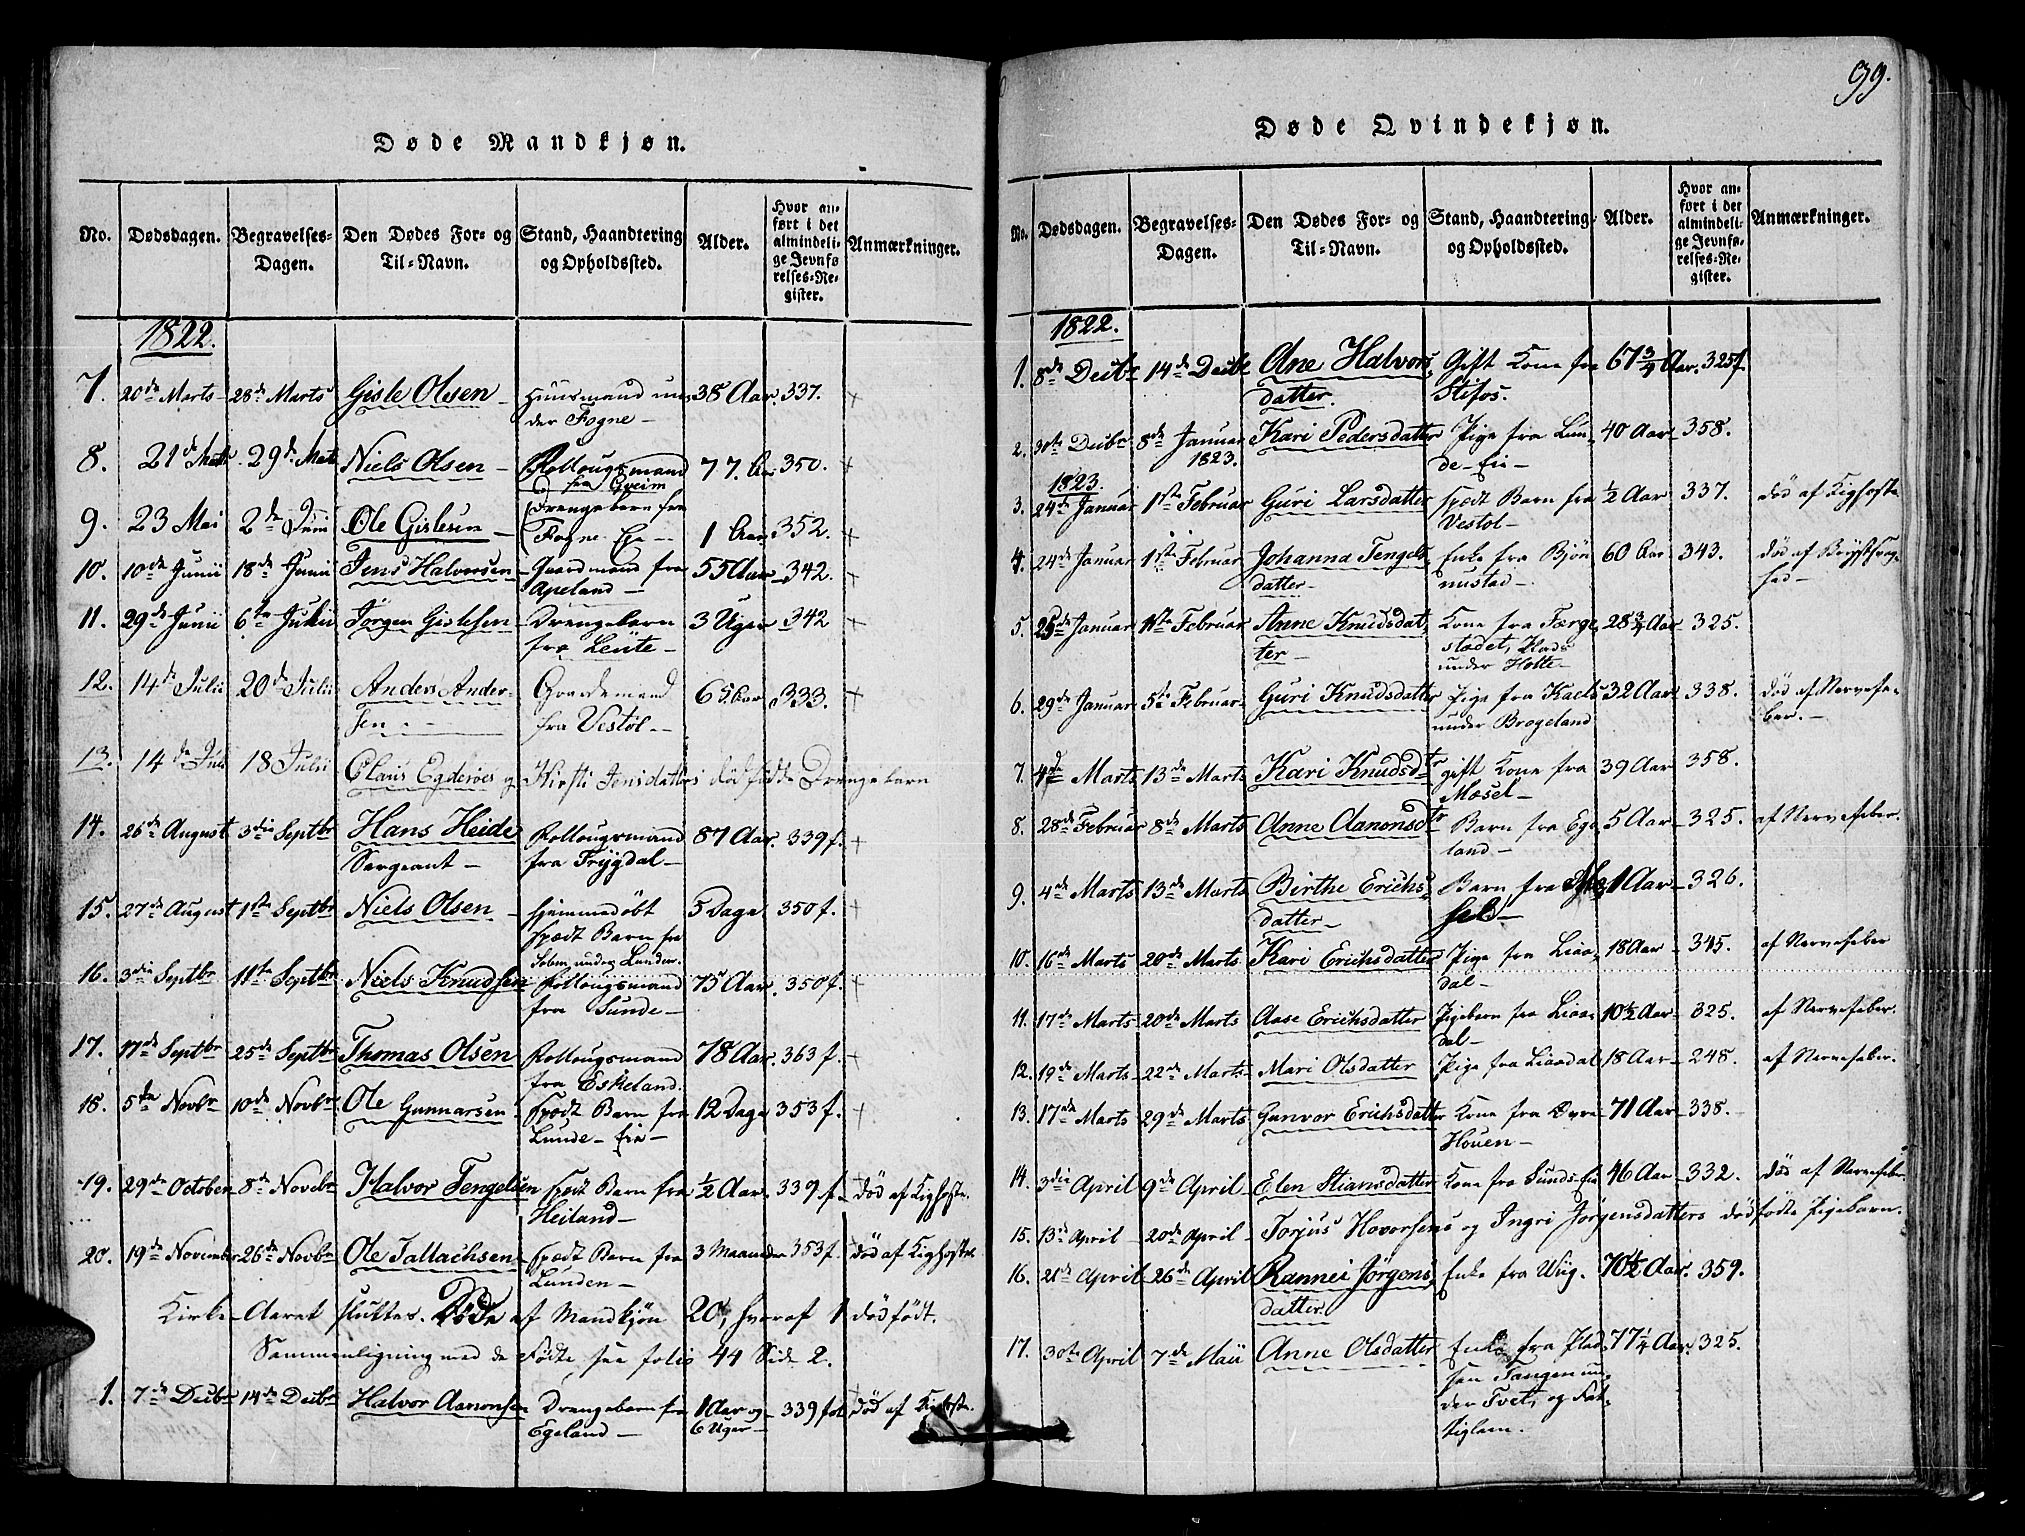 99.
Døde Mandkjøn.
No. Dødsdagen. Begravelses-Dagen. Den Dødes For- og Til-Navn. Stand, Haandtering og Opholdssted. Alder. Hvor anført i det almindelige Jevnførelses-Register. Anmærkninger.
1822.
7. 20de Marts 28de Marts Gisle Olsen Huusmand un- 38 Aar 337. +
der Fogne
8. 21de Marts 29de Marts Niels Olsen Follougsmand 77. Aar 350. +
fra Gveim
9. 23 Mai 2de Junii Ole Gislesen Drengebarn fra
Fogne-Eie 1 Aar 352. +
10. 10de Junii 18de Junii Jens Halvorsen Gaardmand fra 55 Aar 342. +
Apeland
11. 29de Junii 6te Julii Jørgen Gislesen Drengebarn 3 Uger 342 +
fra Leute
12. 14de Julii 20de Julii Anders Ander- Gaardemand 65 Aar 333. +
sen fra Vestøl
13. 14de Juli 18 Julii Claus Egderøes og Kirsti Jensdatters dødfødte Drengebarn
14. 26de August 3die Septbr Hans Heide Follougsmand 87 Aar. 339 f. +
Sergeant fra Trygdal
15. 27de August 1ste Septbr Niels Olsen hjemmedøbt 5 Dage 350 f. +
spædt Barn fra
under Lunden.
16. 3die Septbr 11te Septbr Niels Knudsen Follougsmand 75 Aar. 350 f. +
fra Sunde
17. 17de Septbr 25de Septbr Thomas Olsen Follougsmand 78 Aar. 363 f. +
fra Eskeland.
18. 5te Novbr 10de Novbr Ole Gunnarsen spædt Barn fra 12 Dage 353 f. +
Lunde-Eie
19. 29de October 8de Novebr Halvor Tengelsen spædt Barn fra 1/2 Aar. 339 f. død af Kighoste.
Heiland
20. 19de November 26de Novbr Ole Tallachsen spædt Barn fra 3 Maaneder 353 f. død af Kighoste.
Lunden
Kirke-Aaret sluttes. Døde af Mandkjøn 20, hvoraf 1 dødfødt.
Sammenligning med de Fødte see folio 44 Side 2.
1. 7de Decbr 14de Decbr Halvor Aanonsen Drengebarn fra 1 Aar og 339 fol død af Kighoste.
Egeland 6 Uger
Døde Qvindekjøn.
No. Dødsdagen. Begravelses-Dagen. Den Dødes For- og Til-Navn. Stand, Haandtering og Opholdssted. Alder. Hvor anført i det almindelige Jevnførelses-Register. Anmærkninger.
1822.
1. 8de Decbr 14de Decbr Ane Halvors- Gift Kone fra 67 3/4 Aar. 325 f.
datter. Stifos.
2. 30te Decbr 8de Januar Kari Pedersdatter Pige fra Lun- 40 Aar 358.
1823. de-Eie
1823.
3. 24de Januar 1ste Februar Guri Larsdatter spædt Barn fra 1/2 Aar 337. død af Kighoste
Vestøl
4. 24de Januar 1ste Februar Johanna Tengels- Enke fra Bjøn- 60 Aar 343. død af Brystsvag-
datter nustad hed
5. 25de Januar 1ste Februar Anne Knudsdat- Kone fra Færge- 28 3/4 Aar 325.
ter stædet, Plads
under Holte
6. 29de Januar 5te Februar Guri Knudsdatter Pige fra 32 Aar 338. død af Nervefe-
under Brogeland ber.
7. 4de Marts 13de Marts Kari Knudsdtr gift Kone fra 39 Aar 358.
Mæsel
8. 28de Februar 8de Marts Anne Aanonsdtr Barn fra Ege- 5 Aar 325. af Nervefeber.
land
9. 4de Marts 13de Marts Birthe Erichs- Barn fra Mæ- 1 Aar 326.
datter sel
10. 16de Marts 20de Marts Kari Erichsdatter Pige fra Liaa- 18 Aar 345. af Nervefeber
dal
11. 17de Marts 20de Marts Aase Erichsdatter Pigebarn fra Liaa- 10 1/2 Aar 325. af Nervefeber.
dal
12. 19de Marts 22de Marts Mari Olsdatter Pige fra Liaadal 18 Aar 248. af Nervefeber.
13. 17de Marts 29de Marts Gunvor Erichsdatter Kone fra Dyre- 71 Aar 338.
Houen
14. 3die April 9de April Elen Stiansdatter Kone fra Sunds-Eie 46 Aar 332. død af Nervefeber
15. 13de April 20de April Torjus Hovorsens og Ingri Jørgensdatters dødfødte Pigebarn.
16. 21de April 26de April Rannei Jørgens- Enke fra Wiig. 70 1/2 Aar. 359.
datter
17. 30te April 7de Maii Anne Olsdatter Enke fra Plad- 77 1/4 Aar. 325.
sen Tangen un-
der Tvet, og Fat-
tiglem.